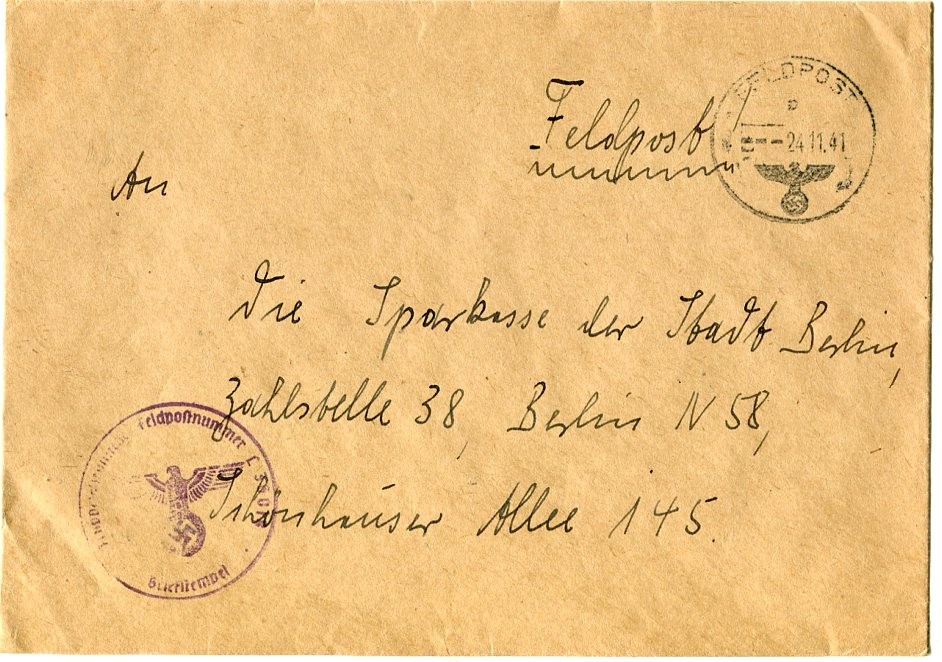 Feldpost!
FELDPOST
24.11.41
An
die Sparkasse der Stadt Berlin,
Zahlstelle 38, Berlin N 58,
Schönhauser Allee 145.
Feldpostnummer L
Briefstempel